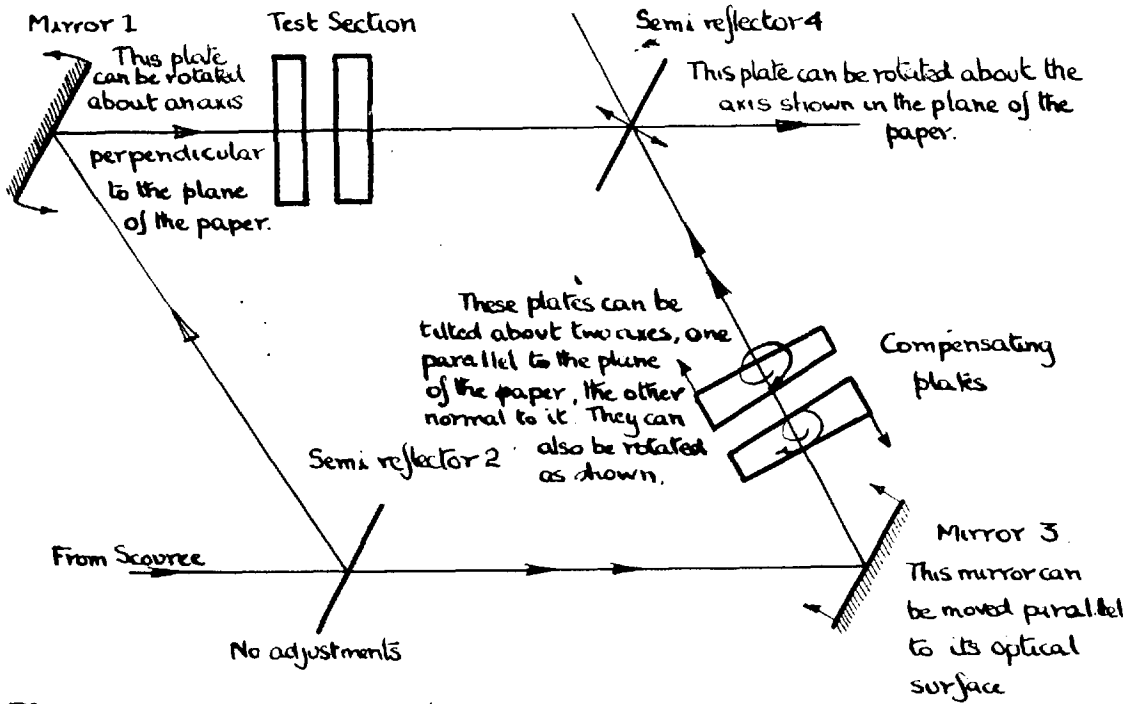 Mirror 1
Test Section
Semi reflector 4
This plate
can be rotated
about an axis
perpendicular
to the plane
of the paper.
This plate can be rotated about the
axis shown in the plane of the
paper.
These plates can be
tilted about two axes, one
parallel to the plane
of the paper, the other
normal to it. They can
also be rotated
as shown.
Compensating
plates
Semi reflector 2
From Scource
No adjustments
Mirror 3
This mirror can
be moved parallel
to its optical
surface